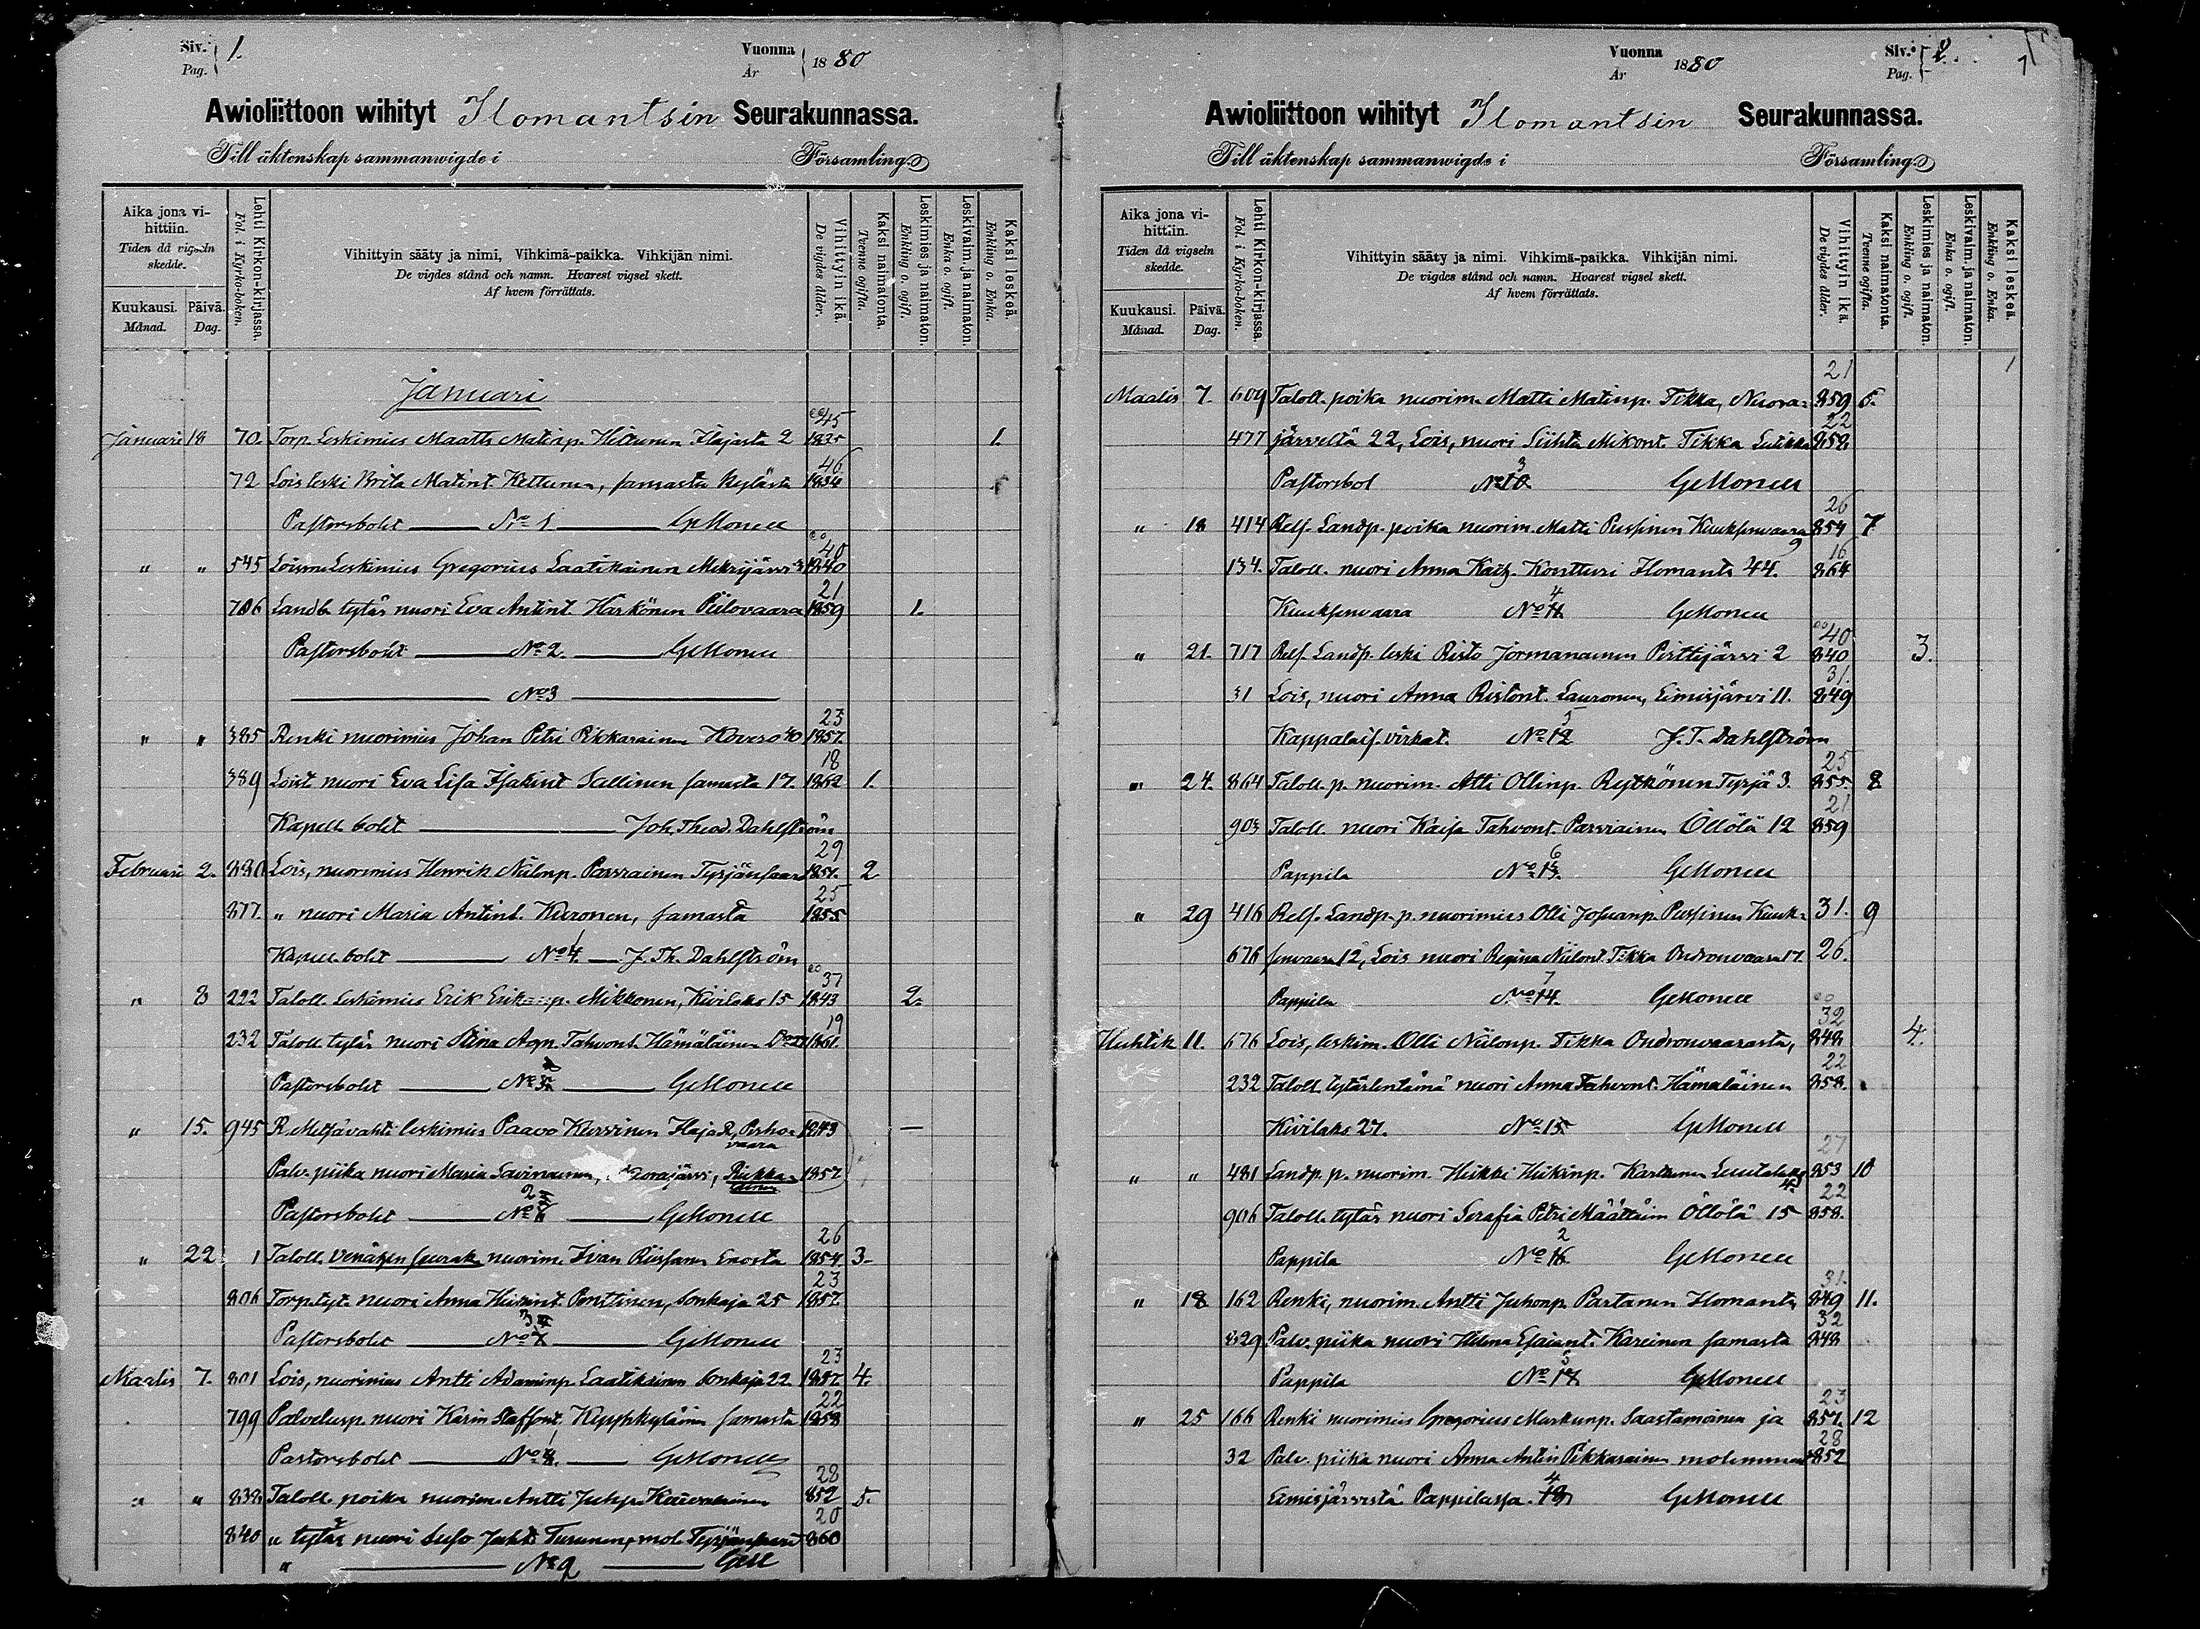 Siv. Pag. 1.
Vuonna År 1880
Awioliittoon wihityt Ilomantsin Seurakunnassa.
Till äktenskap sammanwigde i Församling
Aika jona vihittiin. Tiden då vigseln skedde.
Kuukausi. Månad.
Päivä. Dag.
Lehti Kirkon-kirjassa. Fol. i Kyrko-boken.
Vihittyin sääty ja nimi, Vihkimä-paikka. Vihkijän nimi.
De vigdes stånd och namn. Hvarest vigsel skett.
Af hvem förrättats.
Vihittyin ikä. De vigdes ålder.
Kaksi naimatonta. Tvenne ogifta.
Leskimies ja naimaton. Enkling o. ogift.
Leskivaim. ja naimaton. Enka o. ogift.
Kaksi leskeä. Enkling o. Enka.
Januari
45
Januari 18 70. Torp. Leskimies Maatts Matinp. Hiltunen Ilajasta 2 1835 1.
46.
72 Lois leski Brita Matint. Kettunen, samasta kylästä 1834
Pastorsbolet No 1 GMoneus
40
" " 545 Loismies Leskimies Gregorius Laatikainen Mekrijärvi 1840
21
706 Landb. tytär nuori Eva Antint. Harkönen Piilovaara 1859 1.
Pastorsbolet No 2. GMoneus
No 3
23
" " 385 Renki nuorimies Johan Petri Pikkarainen Kovero 40 1857.
18
389 Loist. nuori Eva Lisa Isakint Sallinen samasta 17. 1862 1.
Kapell. bolet Joh. Theod. Dahlström
29
Februari 2. 880 Lois, nuorimies Henrik Niilonp. Parviainen Tyrjänsaari 1851. 2
25
877. " nuori Maria Antint. Kuronen, samasta 1855
Kapell. bolet No 4. J. Th. Dahlström
37
" 8 222 Taloll. Leskimies Erik Erikinp. Mikkonen, Kivilaks 15 1843 2.
19
232 Taloll. tytär nuori Stina Agn. Tahvont. Hämäläinen Do 27 1861.
Pastorsbolet No 5 GMoneus
" 15. 945 R. Metsävahti leskimies Paavo Kurvinen Haja R, Perho- 1843 —
vaara
Palv. piika nuori Maria Savinainen, 1857
Pastorsbolet No GMoneus
26
" 22 1 Taloll. Venäjän seurak. nuorim. Iivan Riissanen Enosta 1854. 3-
23
806 Torp. tyt. nuori Anna Pönttinen, Sonkaja 25 1857.
Pastorsbolet No 7 GMoneus
23
Maalis 7. 801 Lois, nuorimies Antti Adaminp. Laatikainen Sonkaja 22. 1857. 4.
22
799 Palvelusp. nuori Karin Staffant. samasta 1858
Pastorsbolet No 8. GMoneus
28
" " 838 Taloll. poika nuorim. Antti Juhp. 852 5.
20
840 " tytär nuori Juht. Turunen, mol. Tyrjänsaari 860
" No 9 GM
Siv. Pag. 2.
Vuonna År 1880
Awioliittoon wihityt Ilomantsin Seurakunnassa.
Till äktenskap sammanwigde i Församling
Aika jona vihittiin. Tiden då vigseln skedde.
Kuukausi. Månad.
Päivä. Dag.
Lehti Kirkon-kirjassa. Fol. i Kyrko-boken.
Vihittyin sääty ja nimi. Vihkimä-paikka. Vihkijän nimi.
De vigdes stånd och namn. Hvarest vigsel skett.
Af hvem förrättats.
Vihittyin ikä. De vigdes ålder.
Kaksi naimatonta. Tvenne ogifta.
Leskimies ja naimaton. Enkling o. ogift.
Leskivaim. ja naimaton. Enka o. ogift.
Kaksi leskeä. Enkling o. Enka.
21
Maalis 7. 609 Taloll. poika nuorim. Matti Matinp. Tikka, Nuora- 859 6.
22
477 järveltä 22, Lois, nuori Mikont. Tikka 858
Pastorsbol No 10 3 GMoneus
26
" 18 414 Relf. Landp. poika nuorim. Matti Pussinen Kuuksenvaara 9 854 7
16
134. Taloll. nuori Anna Kais. Kontturi Ilomants 44. 864
Kuuksenvaara No 11 4 GMoneus
40
" 21. 717 Relf. Landp. leski Risto Jormanainen Pirttijärvi 2 840 3.
31.
31 Lois, nuori Anna Ristont. Lauronen, Eimisjärvi 11. 849
Kappalais. virkat. No 12 5 J. T. Dahlström
25
" 24. 864 Taloll. p. nuorim. Atti Ollinp. Rytkönen Tyrjä 3. 855. 8
21
903 Taloll. nuori Kaisa Tahvont. Parviainen Öllölä 12 859
Pappila No 13. 6 GMoneus
" 29 416 Relf. Landp. p. nuorimies Olli Josuanp. Pussinen Kuuk- 31. 9
676 senvaara 12, Lois nuori Regina Niilont. Tikka Ondronvaara 17. 26.
Pappila No 14. 7 GMoneus
32
Huhtik 11. 676 Lois, leskim. Olli Niilonp. Tikka Ondronvaarasta, 848 4.
22
232 Taloll. tytärlentämä nuori Anna Tahvont. Hämäläinen 858.
Kivilaks 27. No 15 GMoneus
27
" " 481 Landp. p. nuorim. Heikki Heikinp. Karttunen 853 10
22
906 Taloll. tytär nuori Serafia Petri Määttäin Öllölä 15 858.
Pappila No 16 2 GMoneus
31.
" 18 162 Renki, nuorim. Antti Juhonp. Partanen Ilomants 849 11.
32
829 Palv. piika nuori Helena Esaiant. Kareinen samasta 848
Pappila No 17 3 GMoneus
23
" 25 166 Renki nuorimies Gregorius Markunp. Saastamoinen ja 857. 12
28
32 Palv. piika nuori Anna Antin Pikkarainen molemmat 852
Eimisjärvestä Pappilassa. 18 4 GMoneus